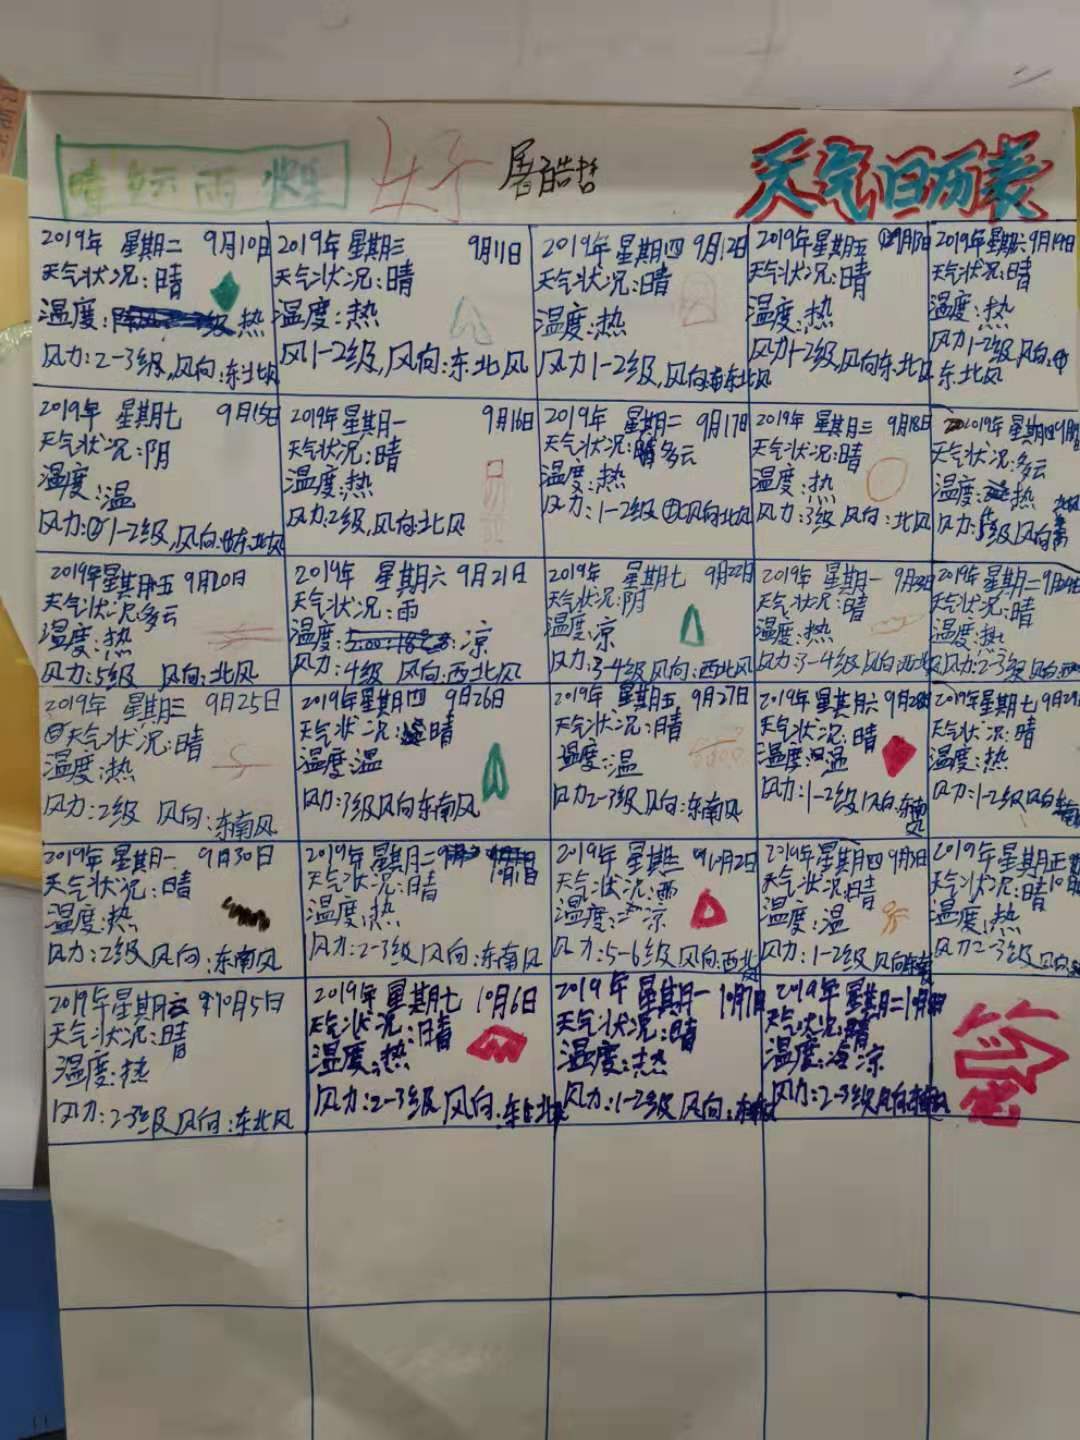 晴 雨 好 屠酷哲 天气日历表
2019年 星期二 9月10日
天气状况:晴
温度:热
风力:2-3级,风向:东北风
2019年星期三 9月11日
天气状况:晴
温度:热
风1-2级,风向:东北风
2019年星期四 9月12日
天气状况:晴
温度:热
风力1-2级,风向东北风
2019年星期五
天气状况:晴
温度:热
风力1-2级,风向东北风
2019年星期六9月19日
天气状况:晴
温度:热
风力1-2级,风向:
东北风
2019年 星期七 9月15日
天气状况:阴
温度:温
风力:1-2级,风向:东北风
2019年星期一 9月16日
天气状况:晴
温度:热
风力:2级,风向:北风
2019年 星期二 9月17日
天气状况:多云
温度:热
风力:1-2级 风向北风
2019年 星期三 9月18日
天气状况:晴
温度:热
风力:3级 风向:北风
2019年 星期四9月
天气状况:多云
温度:热
风力:5级风向
2019年星期五 9月20日
天气状况:多云
温度:热
风力:5级 风向:北风
2019年 星期六 9月21日
天气状况:雨
温度:凉
风力:4级 风向:西北风
2019年 星期七 9月22日
天气状况:阴
温度:凉
风力:3-4级风向:西北风
2019年 星期一 9月
天气状况:晴
温度:热
风力:3-4级 风向西北
2019年星期二
天气状况:晴
温度:热
风力:2-3级 风向
2019年 星期三 9月25日
天气状况:晴
温度:热
风力:2级 风向:东南风
2019年星期四 9月26日
天气状况:晴
温度:温
风力:3级风向东南风
2019年 星期五 9月27日
天气状况:晴
温度:温
风力2-3级风向:东南风
2019年星期六9月28日
天气状况:晴
温度:温
风力:1-2级 风向:东南
风
2019年星期七9月29
天气状况:晴
温度:热
风力:1-2级 风向东南
2019年 星期一 9月30日
天气状况:晴
温度:热
风力:2级 风向:东南风
2019年 星期二 10月1日
天气状况:晴
温度:热
风力:2-3级 风向:东南风
2019年 星期三 10月2日
天气状况:雨
温度:凉
风力:5-6级风向:西北
2019年星期四 9月3日
天气状况:晴
温度:温
风力:1-2级 风向东南
2019年星期五
天气状况:晴
温度:热
风力2-3级 风向
2019年星期六 10月5日
天气状况:晴
温度:热
风力:2-3级 风向:东北风
2019年 星期七 10月6日
天气状况:晴
温度:热
风力:2-3级 风向:东北
2019年 星期一 10月7日
天气状况:晴
温度:热
风力:1-2级 风向:东南
2019年 星期二10月8日
天气状况:晴
温度:凉
风力:2-3级风向东南风